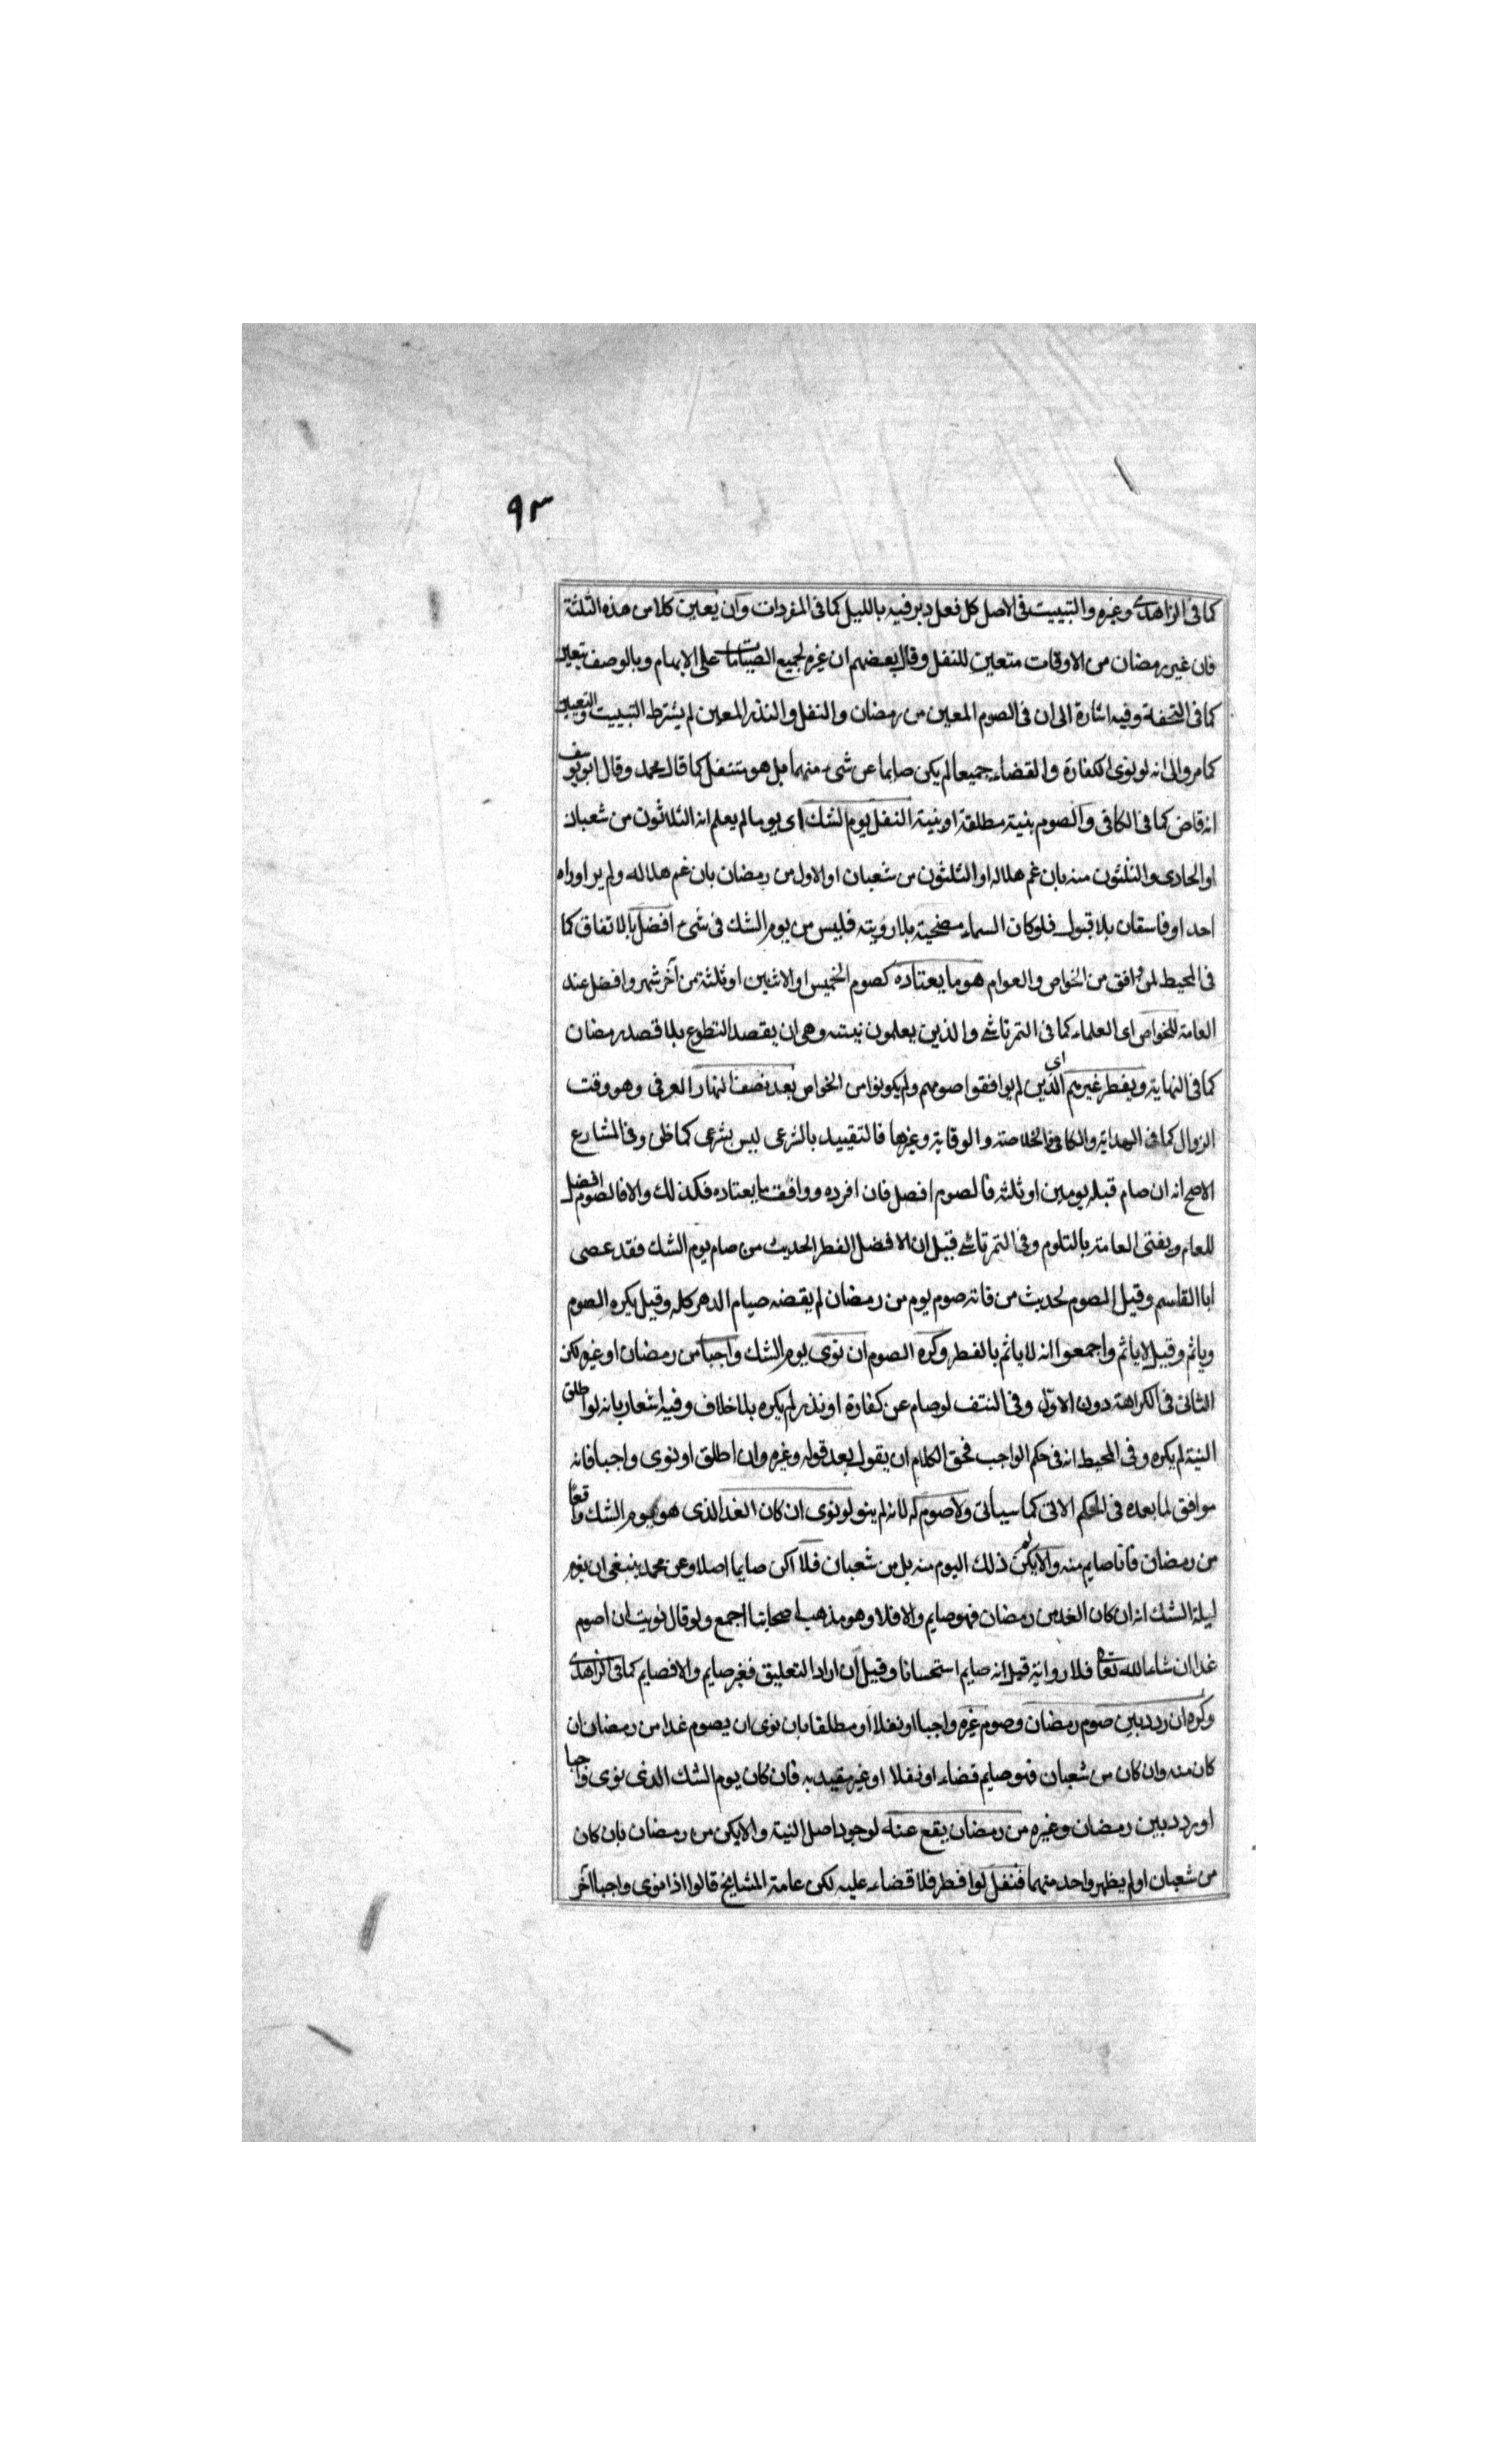 ٩٣
كما فى الزاهدى وغيره والتبييت فى الاصل كل فعل دبر فيه بالليل كما فى المفردات وان يعين كلا من هذه الثلثة
فان غير رمضان من الاوقات متعين للنفل وقال بعضهم ان غيره لجميع الصيامات على الابهام وبالوصف يتعين
كما فى التحفة وفيه اشارة الى ان فى الصوم المعين من رمضان والنفل والنذر المعين لم يشترط التبييت والتعيين
كما مر والى انه لو نوى الكفارة والقضاء جميعا لم يكن صايما عن شىء منهما بل هو متنفل كما قال محمد وقال ابو يوسف
انه قاض كما فى الكافى والصوم بنية مطلقة او بنية النفل يوم الشك اى يوما لم يعلم انه الثلاثون من شعبان
او الحادى والثلثون منه بان غم هلاله او الثلثون من شعبان او الاول من رمضان بان غم هلاله ولم ير او راه
احد او فاسقان بلا قبول فلو كان السماء مصحية بلا رويته فليس من يوم الشك فى شىء افضل بالاتفاق كما
فى المحيط لمن وافق من الخواص والعوام هو ما يعتاده كصوم الخميس او الاثنين او ثلثة من آخر شهر وافضل عند
العامة للخواص اى العلماء كما فى التمرتاشى والذين يعلمون نيته وهى ان يقصد التطوع بلا قصد رمضان
كما فى النهاية ويفطر غيرهم اى الذين لم يوافقوا صومهم ولم يكونوا من الخواص بعد نصف النهار العرفى وهو وقت
الزوال كما فى الهداية والكافى والخلاصة والوقاية وغيرها فالتقييد بالشرعى ليس بشرعى كما ظن وفى المشارع
الاصح انه ان صام قبله يومين او ثلثه فالصوم افضل فان افرده ووافق ما يعتاده فكذلك والا فالصوم افضل
للعام ويفتى العامة بالتلوم وفى التمرتاشى قيل ان الافضل الفطر لحديث من صام يوم الشك فقد عصى
ابا القاسم وقيل الصوم لحديث من فاته صوم يوم من رمضان لم يقضه صيام الدهر كله وقيل يكره الصوم
وياثم وقيل لا ياثم واجمعوا انه لا ياثم بالفطر وكره الصوم ان نوى يوم الشك واجبا من رمضان او غيره لكن
الثانى فى الكراهة دون الاول وفى النتف لو صام عن كفارة او نذر لم يكره بلا خلاف وفيه اشعار بانه لو اطلق
النية لم يكره وفى المحيط انه فى حكم الواجب فحق الكلام ان يقول بعد قوله وغيره وان اطلق او نوى واجبا فانه
موافق لما بعده فى الحكم الاتى كما سياتى ولا صوم له لانه لم ينو لو نوى ان كان الغد الذى هو يوم الشك واقعا
من رمضان فانا صايم منه والا يكن ذلك اليوم منه بل من شعبان فلا اكن صايما اصلا وعن محمد ينبغى ان يعزم
ليلة الشك انه ان كان الغد من رمضان فهو صايم والا فلا وهو مذهب اصحابنا اجمع ولو قال نويت ان اصوم
غدا ان شاء الله تعالى فلا رواية قيل انه صايم استحسانا وقيل ان اراد التعليق فغير صايم والا فصايم كما فى الزاهدى
وكره ان ردد بين صوم رمضان وصوم غيره واجبا او نفلا او مطلقا بان نوى ان يصوم غدا من رمضان ان
كان منه وان كان من شعبان فهو صايم قضاء او نفلا او غير مقيد به فان كان يوم الشك الذى نوى واجبا
او ردد بين رمضان وغيره من رمضان يقع عنه لوجود اصل النية والا يكن من رمضان بان كان
من شعبان او لم يظهر واحد منهما فنفل لو افطر فلا قضاء عليه لكن عامة المشايخ قالوا اذا نوى واجبا آخر